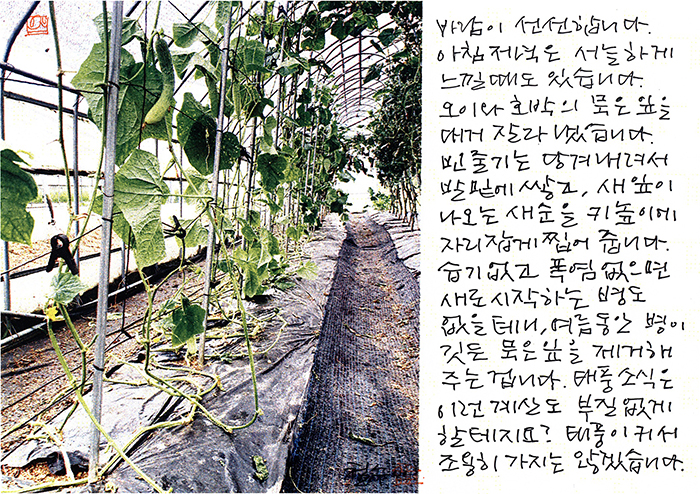 바람이 선선합니다.
아침저녁은 서늘하게
느낄때도 있습니다.
오이와 호박의 묵은 잎을
대거 잘라 냈습니다.
빈 줄기는 당겨내려서
발밑에 쌓고, 새잎이
나오는 새순을 키높이에
자리잡게 찝어 줍니다.
습기없고 폭염없으면
새로 시작하는 병도
없을테니, 여름동안 병이
깃든 묵은잎을 제거해
주는 겁니다. 태풍소식은
이런 계산도 부질없게
할테지요? 태풍이 커서
조용히 가지는 않겠습니다.